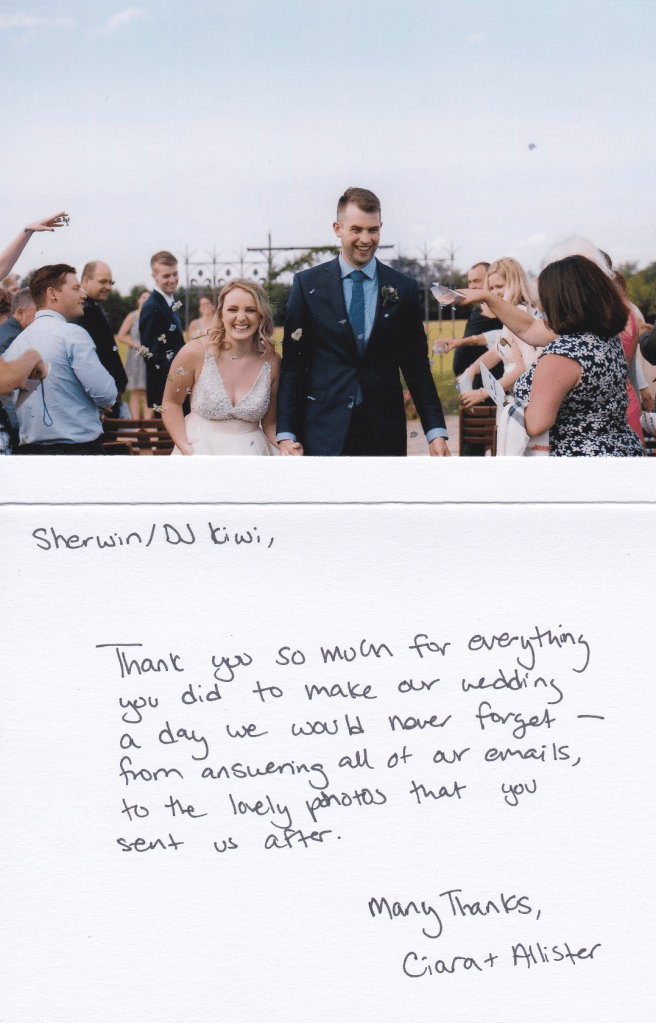 Sherwin/DJ Kiwi,
Thank you so much for everything
you did to make our wedding
a day we would never forget —
from answering all of our emails,
to the lovely photos that you
sent us after.
Many Thanks,
Ciara + Allister